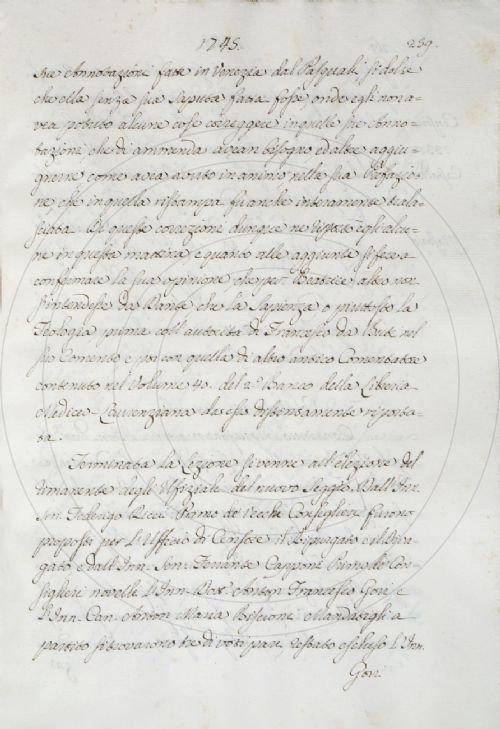 1745. 239.
sue Annotazioni fatte in Venezia dal Pasquali si dolse
che ella senza sua saputa fatta fosse, onde egli non a-
vea potuto alcune cose correggere in quelle sue Anno-
tazioni che di ammenda avean bisogno ed altre aggiu-
gnerne come avea avuto in animo nella sua Prefazio-
ne che in quella ristampa fu anche interamente trala-
sciata. Di queste correzioni dunque ne riportò egli alcu-
ne in questa mattina e quanto alle aggiunte si fece a
confermare la sua opinione che per Beatrice altro non
s'intendesse da Dante che la Sapienza o piuttosto la
Teologia prima coll'autorità di Francesco da Buti nel
suo Comento e poi con quella di altro antico Comentatore
contenuto nel Volume 4. del 2. Banco della Libreria
Mediceo-Laurenziana da esso distesamente riporta-
ta.
Terminata la Lezione si venne all'elezione del
rimanente degli Ufiziali del nuovo Reggio. Dall'Inn.
Sen. Federigo Ricci Primo de' Vecchi Consiglieri furono
proposti per l'Uffizio di Censore il Ripurgato e il Divu-
gato e dall'Inn. Sen. Ferrante Capponi Primo de Con-
siglieri novelli l'Inn. Dot. Anton Francesco Gori e
l'Inn. Can. Anton Maria Biscioni. Mandatigli a
partito si trovarono tre di voti pari restato escluso l'Inn.
Gori.